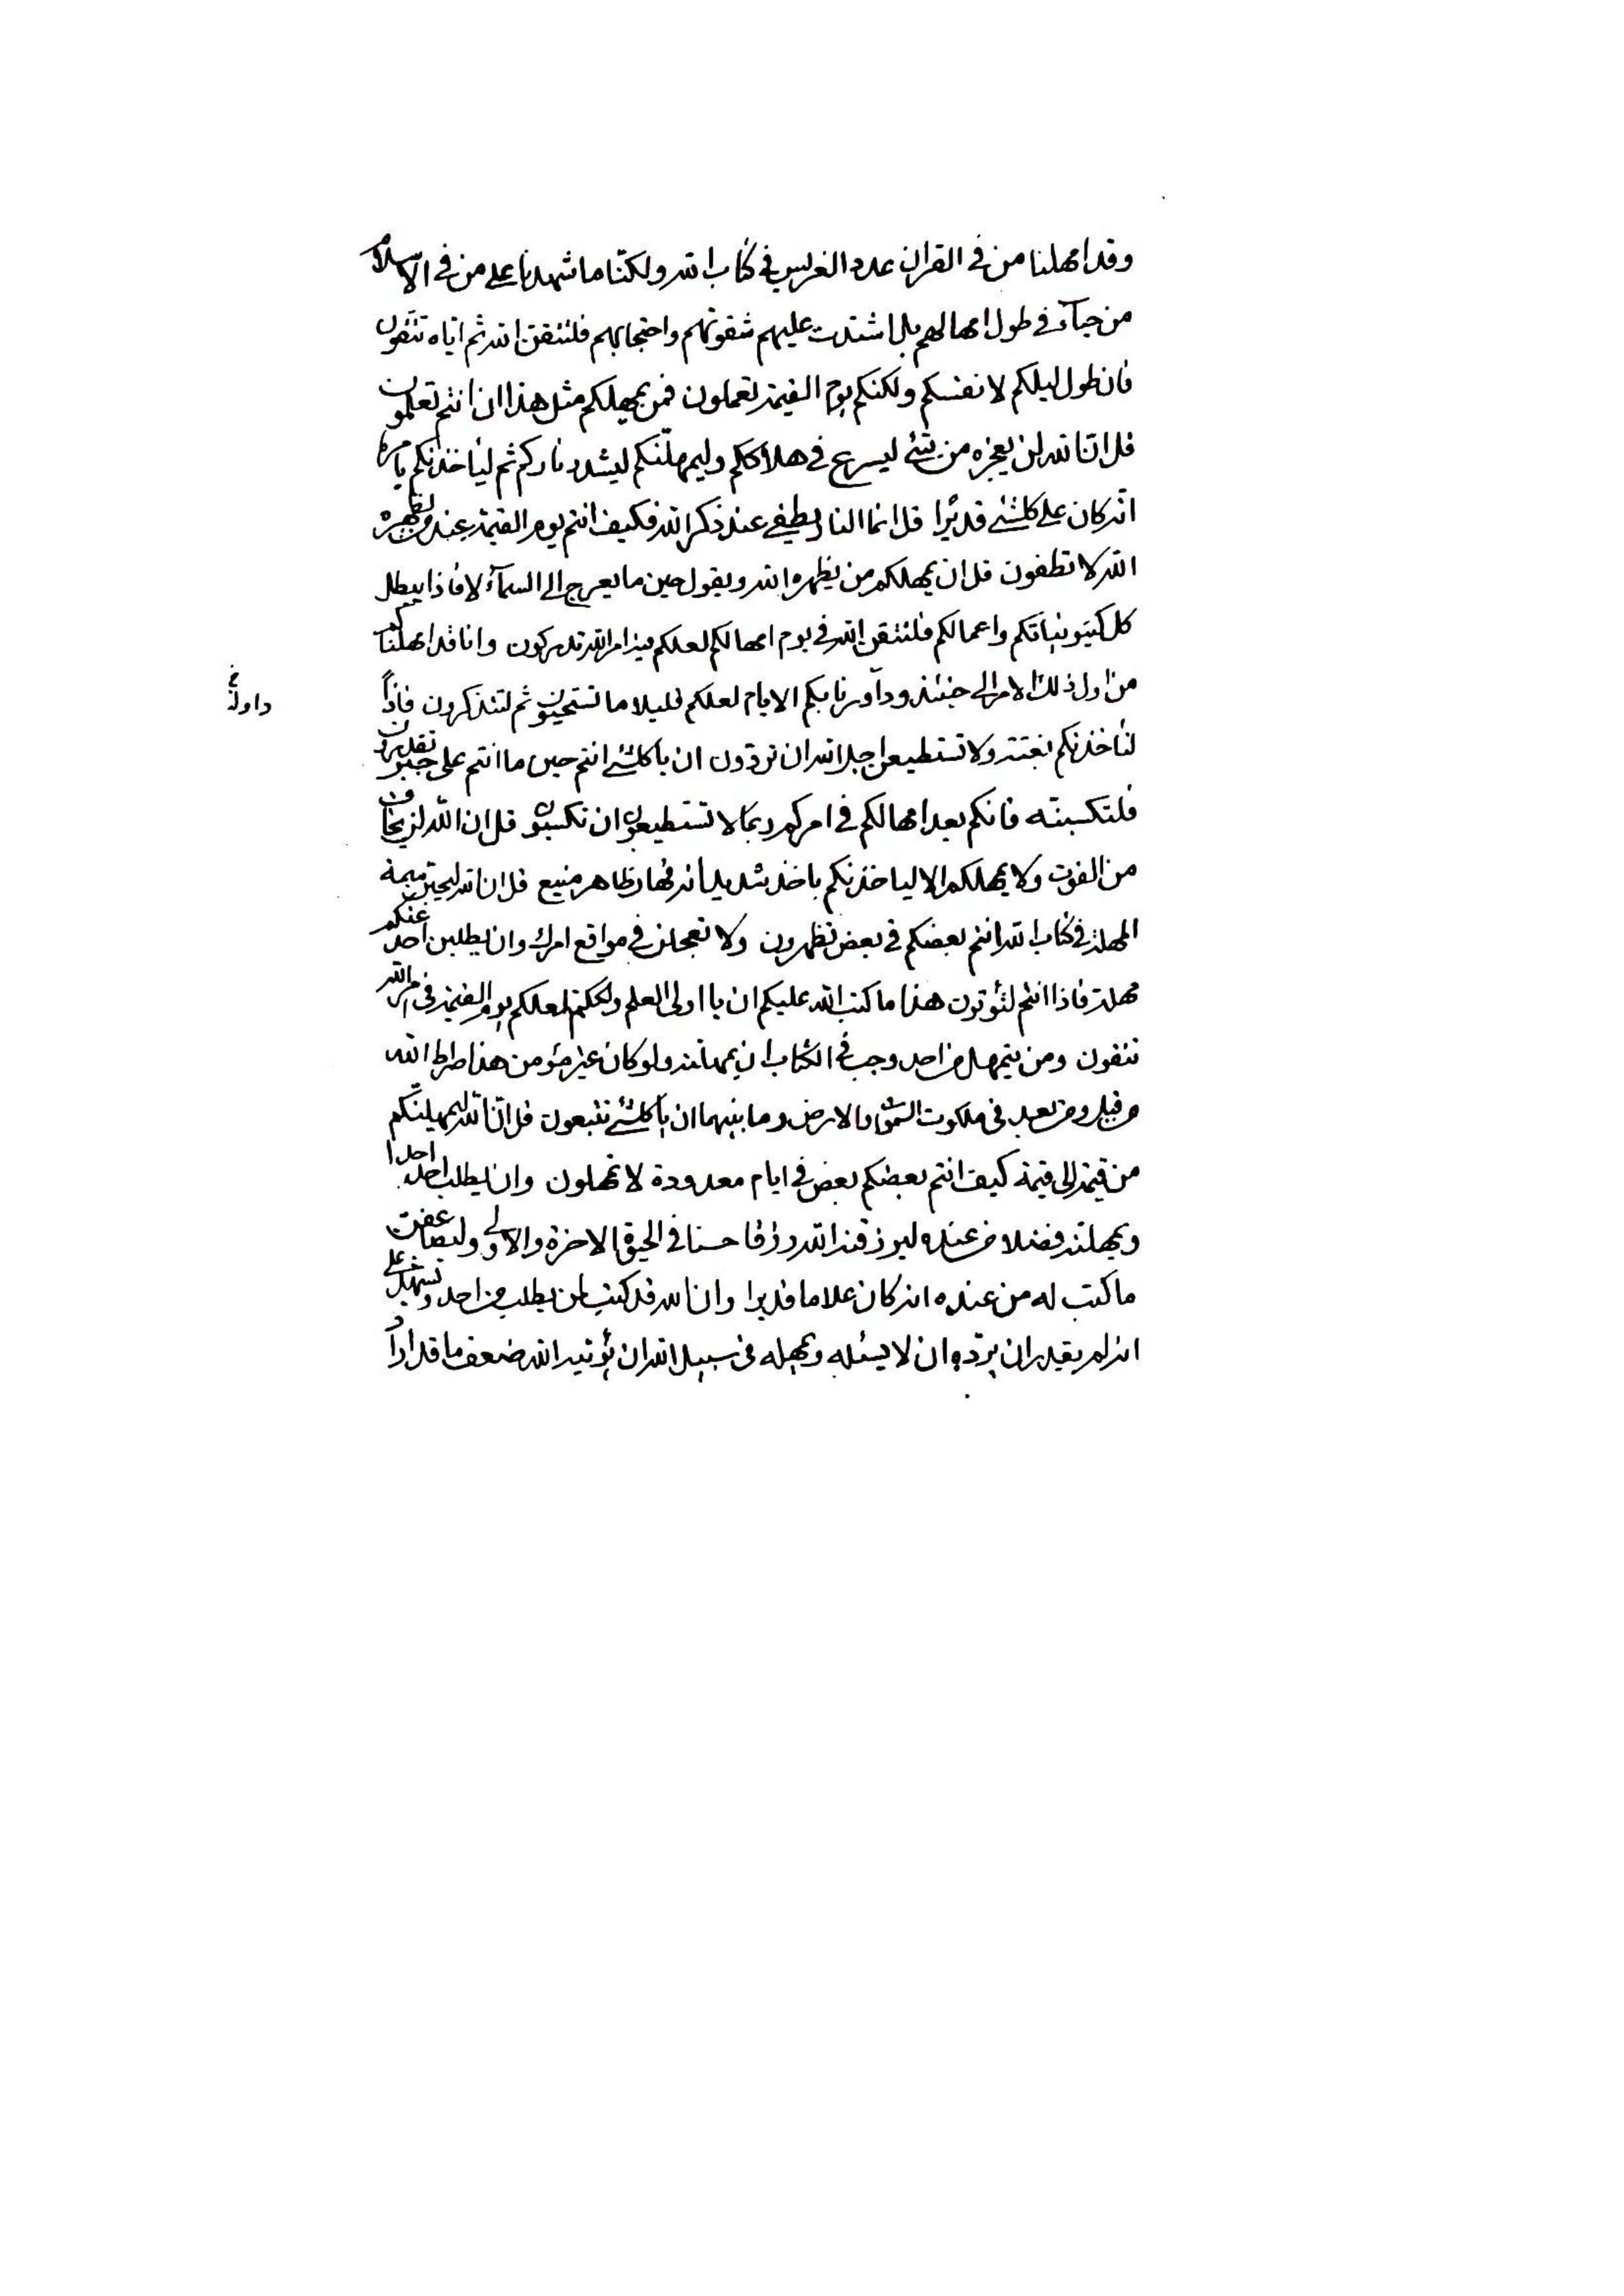 وقد امهلنا من في القران عدد الغريس في كتاب الله ولكنا ما شهدنا على من في الاسلام
من حيآء في طول امهالهم بل اشتدت عليهم شقوتهم واحتجابهم فلتتقن الله ثم اياه تتقون
فان طول ليلكم لانفسكم ولكنكم يوم القيمة تعملون فمن يمهلكم مثل هذا ان انتم تعلمون
قل انا الله لن يعجزه من شئ ليسرع في هلاككم وليمهلنكم ليشدد ناركم ثم ليأخذنكم بامره
انه كان على كلشئ قديرا قل انما النار يطفى عند ذكر الله فكيف انتم يوم القيمة عند من يظهره
الله لا تطفون قل ان يمهلكم من يظهره الله ويقول حين ما يعرج الى السمآء لا فاذا يبطل
كل كينونياتكم واعمالكم فلتتقن الله في يوم امهالكم لعلكم ميزا امر الله تدركون وانا قد امهلناكم
من اول ذلك الامر الى حينئذ ودآورنا بكم الايام لعلكم قليلا ما تستحيون ثم لتتذكرون فاذاً
داولنا خ
لنأخذنكم بغتة ولا تستطيعن اجل الله ان تردون ان يا كلشئ انتم حين ما انتم على خير تقدرون
فلتكسبنه فانكم بعد امهالكم في امركم ربما لا تستطيعون ان تكسبون قل ان الله لن يخاف
من الفوت ولا يمهلكم الا ليأخذنكم باخذ شديد انه قهار ظاهر منيع قل ان الله ليحبن تيمة
المهلة في كتاب الله انتم بعضكم في بعض تظهرون ولا تعجلن في مواقع امرك وان يطلبن احد عنكم
مهلة فاذا انتم لتؤتون هذا ما كتب الله عليكم ان يا اولى العلم والحكمة لعلكم يوم القيمة في امر الله
تتقون ومن يتمهل من احد وجب في الكتاب ان يمهلنه ولو كان غير مؤمن هذا صراط الله
من قبل ومن بعد في ملكوت السموات والارض وما بينهما ان يا كلشئ تتبعون قل انا الله ليمهلنكم
من قيمة الى قيمة كيف انتم بعضكم بعض في ايام معدودة لا تمهلون وان يطلب احد احدا
ويمهلنه فضلا من عنده ليرزقنه الله رزقا حسنا في الحيوة الاخرة والاولى وليضاعفن
ما كتب له من عنده انه كان علاما قديرا وان الله قد كتب لمن يطلب من احد وتشهد على
انه لم يقدر ان يرده ان لا يسئله ويمهله في سبيل الله ان يؤتيه الله ضعف ما قد اراد